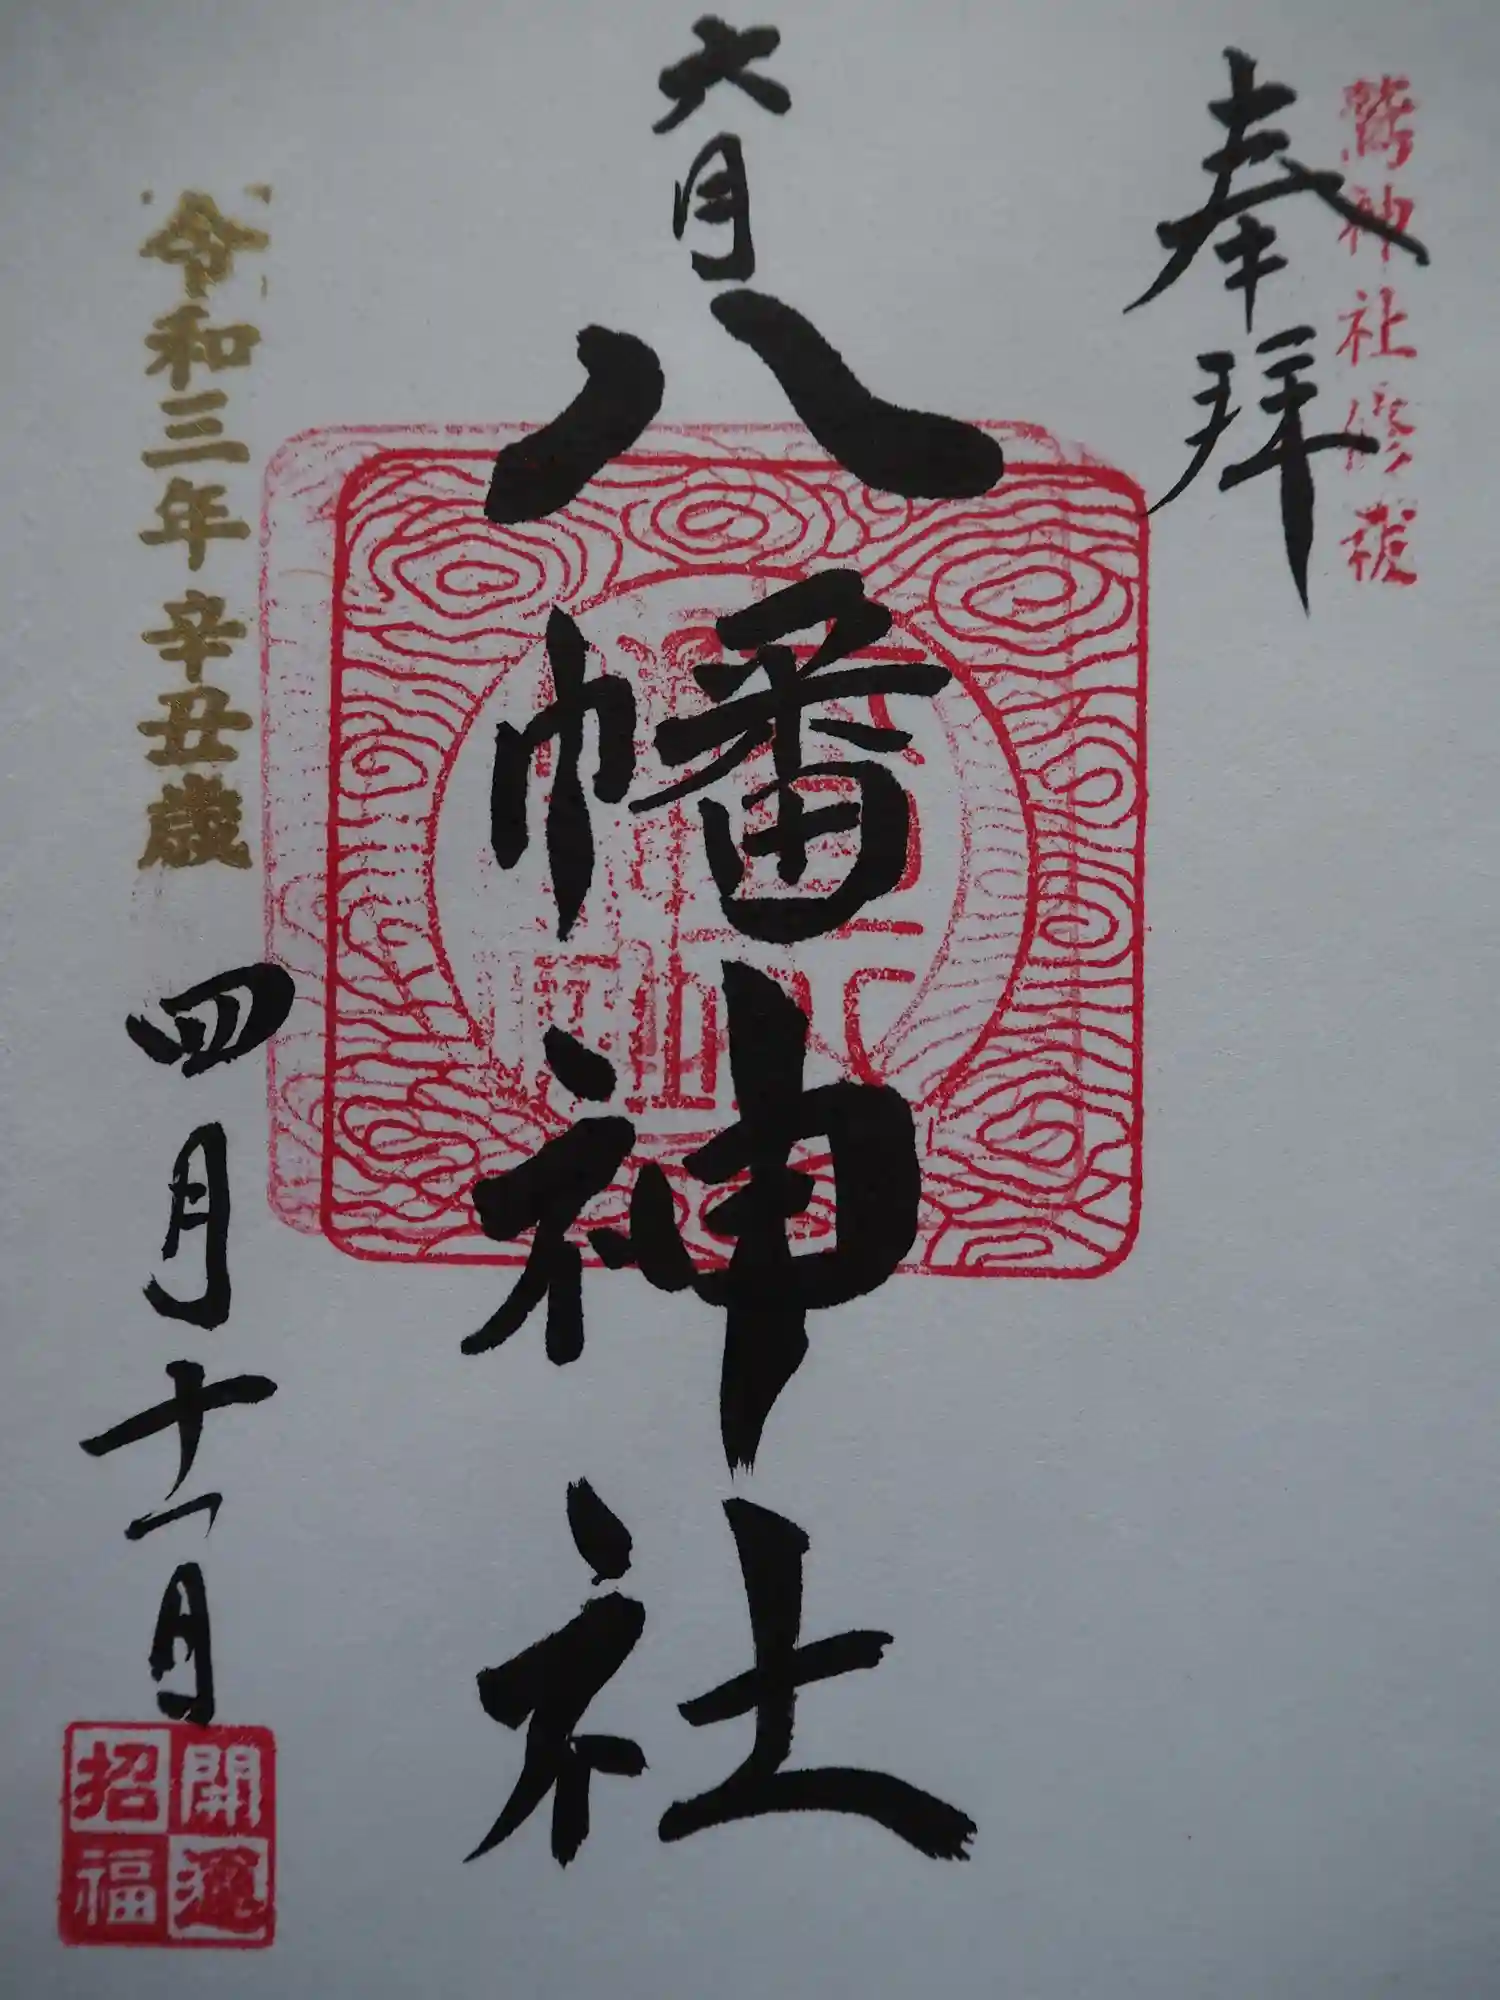 鷲神社修祓
奉拝
六月
八幡神社
令和三年 辛丑歳 四月十一日
開運
招福